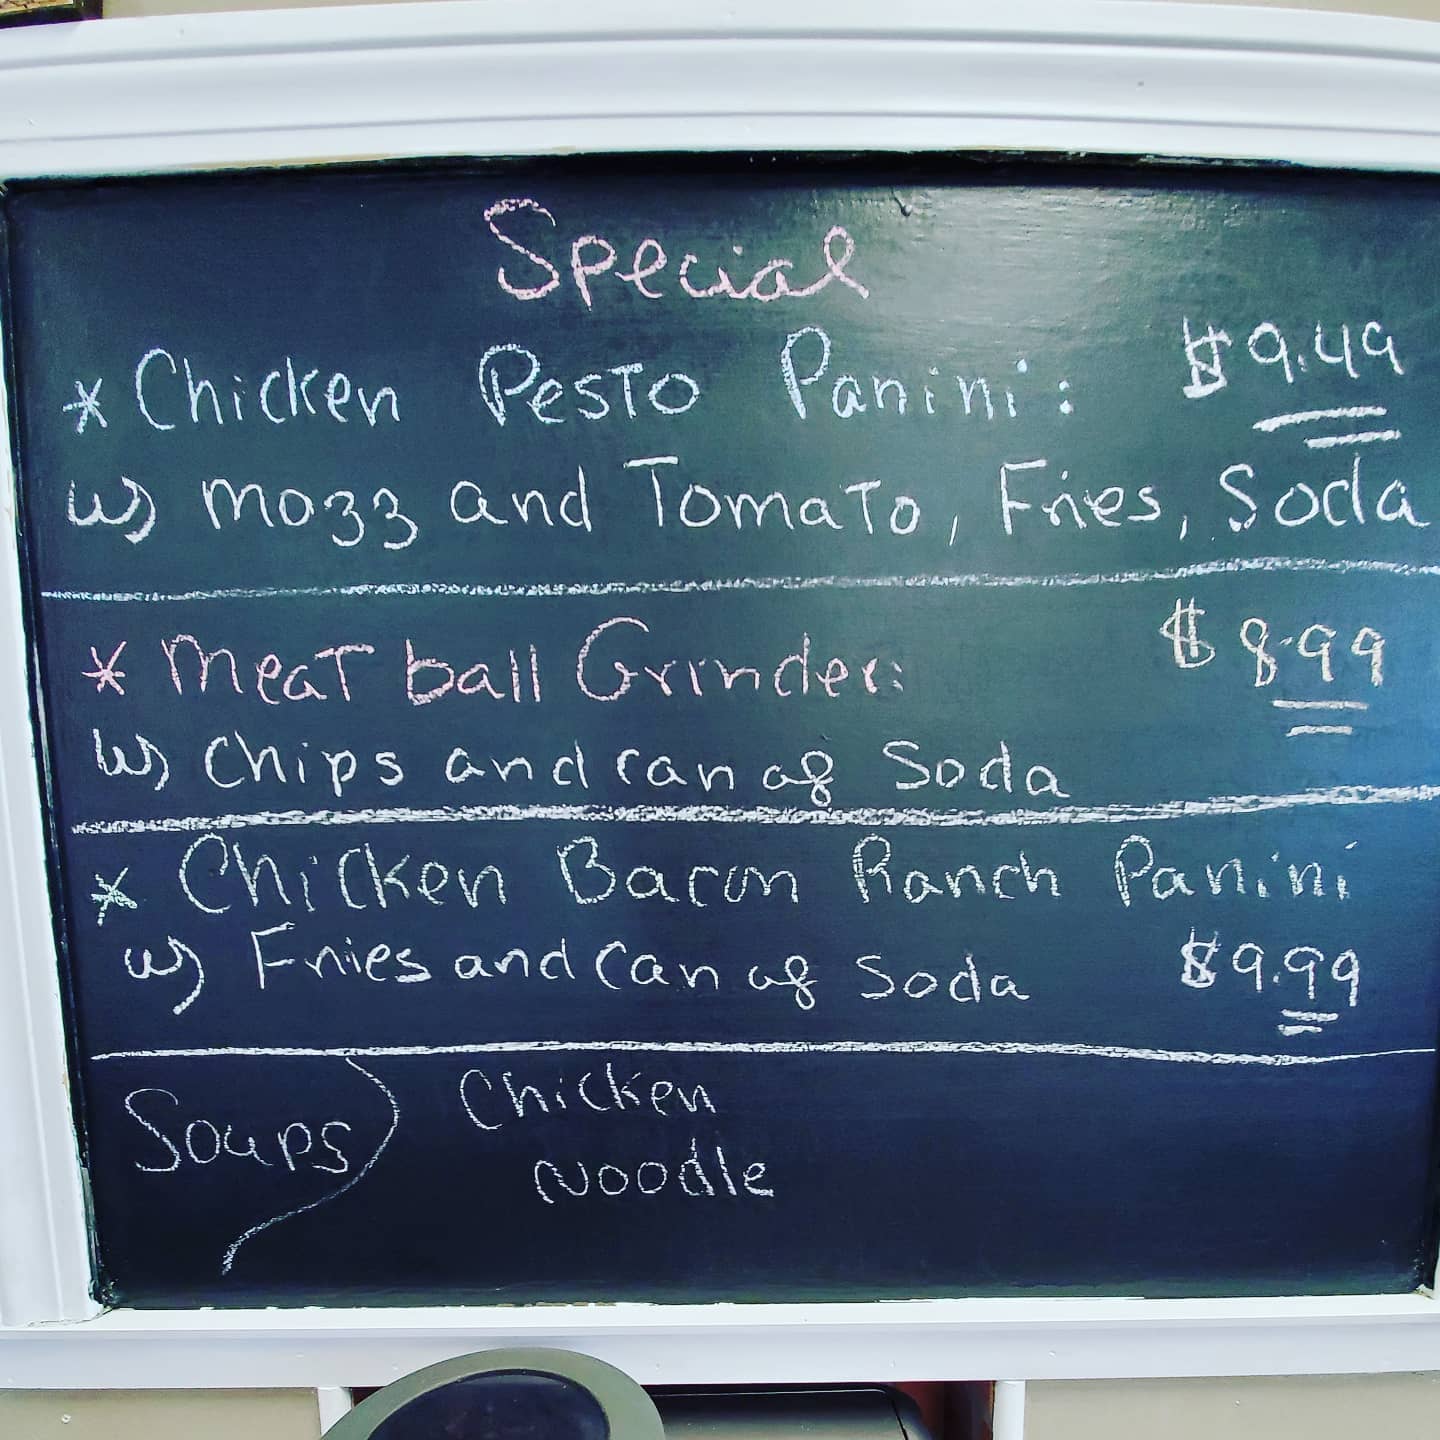 Special
* Chicken Pesto Panini: $9.49
w) mozz and Tomato, Fries, Soda
* Meat ball Grinder: $8.99
w) chips and can of Soda
* Chicken Bacon Ranch Panini
w) Fries and can of Soda $9.99
Soups) Chicken
Noodle